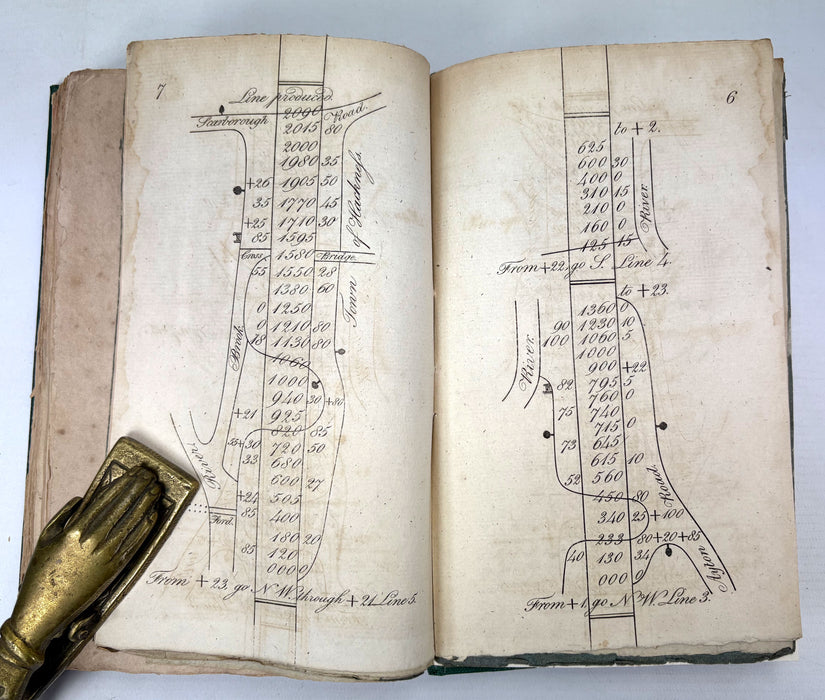 7
Line produced.
2000
Scarborough Road.
2015 80
2000
1980 35
+26 1905 50
35 1770 45
+25 1710 30
85 1595
Town of Hackness.
Cross 1580 Bridge.
55 1550 28
1380 60
0 1250
0 1210 80
18 1130 80
Brook.
1060
1000
940 30 +80
+21 925
820 85
55+30 720 50
33 680
River.
600 27
+24 505
Ford. 85 400
180 20
85 120
000 0
From +23, go N W through +21 Line 5.
6
to + 2.
625
600 30
400 0
310 15
210 0
160 0
River
125 15
From +22, go S. Line 4.
to +23.
1360 0
90 1230 10
100 1060 5
River.
1000
900 +22
82 795 5
760 0
75 740
715 0
73 645
615 10
52 560
450 80
340 25 +100
233 80+20+85
40 130 34
000 0
Ayton Road.
From +1, go N W. Line 3.